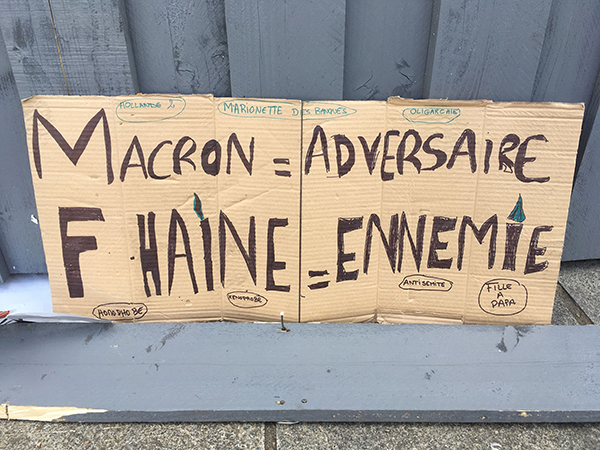 HOLLANDE 2
MARIONETTE DES BANQUES
OLIGARCHIE
MACRON = ADVERSAIRE
F HAINE = ENNEMIE
HOMOPHOBE
XENOPHOBE
ANTISEMITE
FILLE
A
PAPA